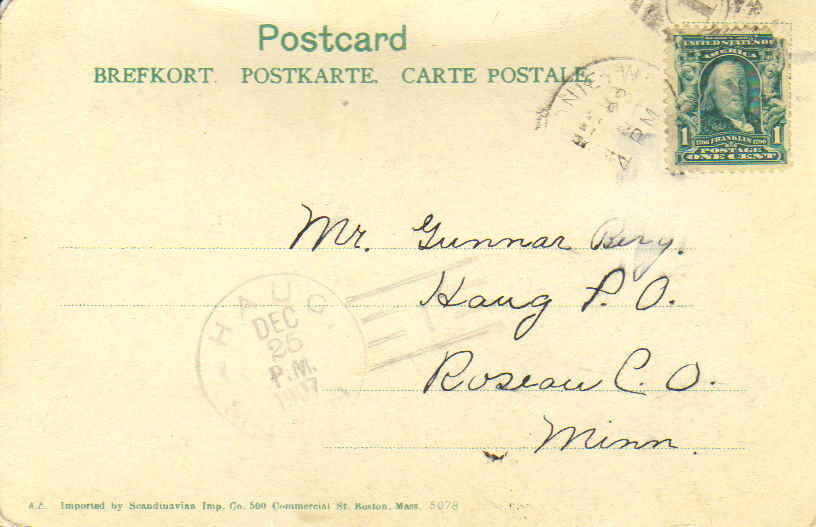 Postcard
BREFKORT. POSTKARTE. CARTE POSTALE.
UNITED STATES OF
AMERICA
1 1706 FRANKLIN 1790 1
POSTAGE
ONE CENT
4 PM
Mr. Gunnar Berg.
Haug P. O.
Roseau C. O.
Minn.
HAUG
DEC
25
P.M.
1907
A.E. Imported by Scandinavian Imp. Co. 500 Commercial St. Boston, Mass. 5078